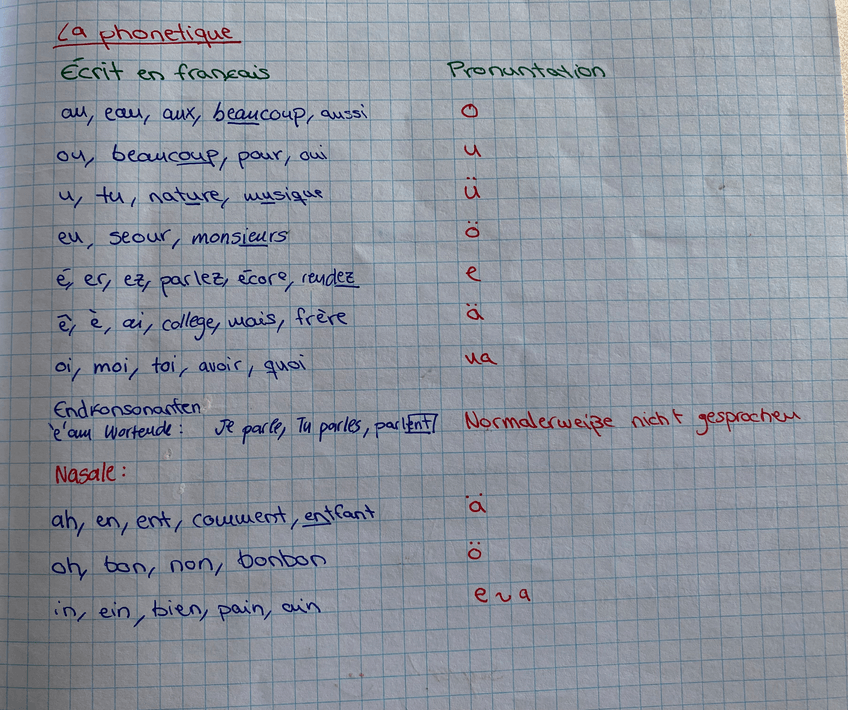 La phonetique
Écrit en francais Pronuntation
au, eau, aux, beaucoup, aussi o
ou, beaucoup, pour, oui u
u, tu, nature, musique ü
eu, seour, monsieurs ö
é, er, ez, parlez, écore, rendez e
ê, è, ai, college, mais, frère ä
oi, moi, toi, avoir, quoi ua
Endkonsonanten
'e' am Wortende: Je parle, Tu parles, parlent Normalerweiße nicht gesprochen
Nasale:
ah, en, ent, comment, entfant ä
oh, bon, non, bonbon ö
in, ein, bien, pain, ain e~a